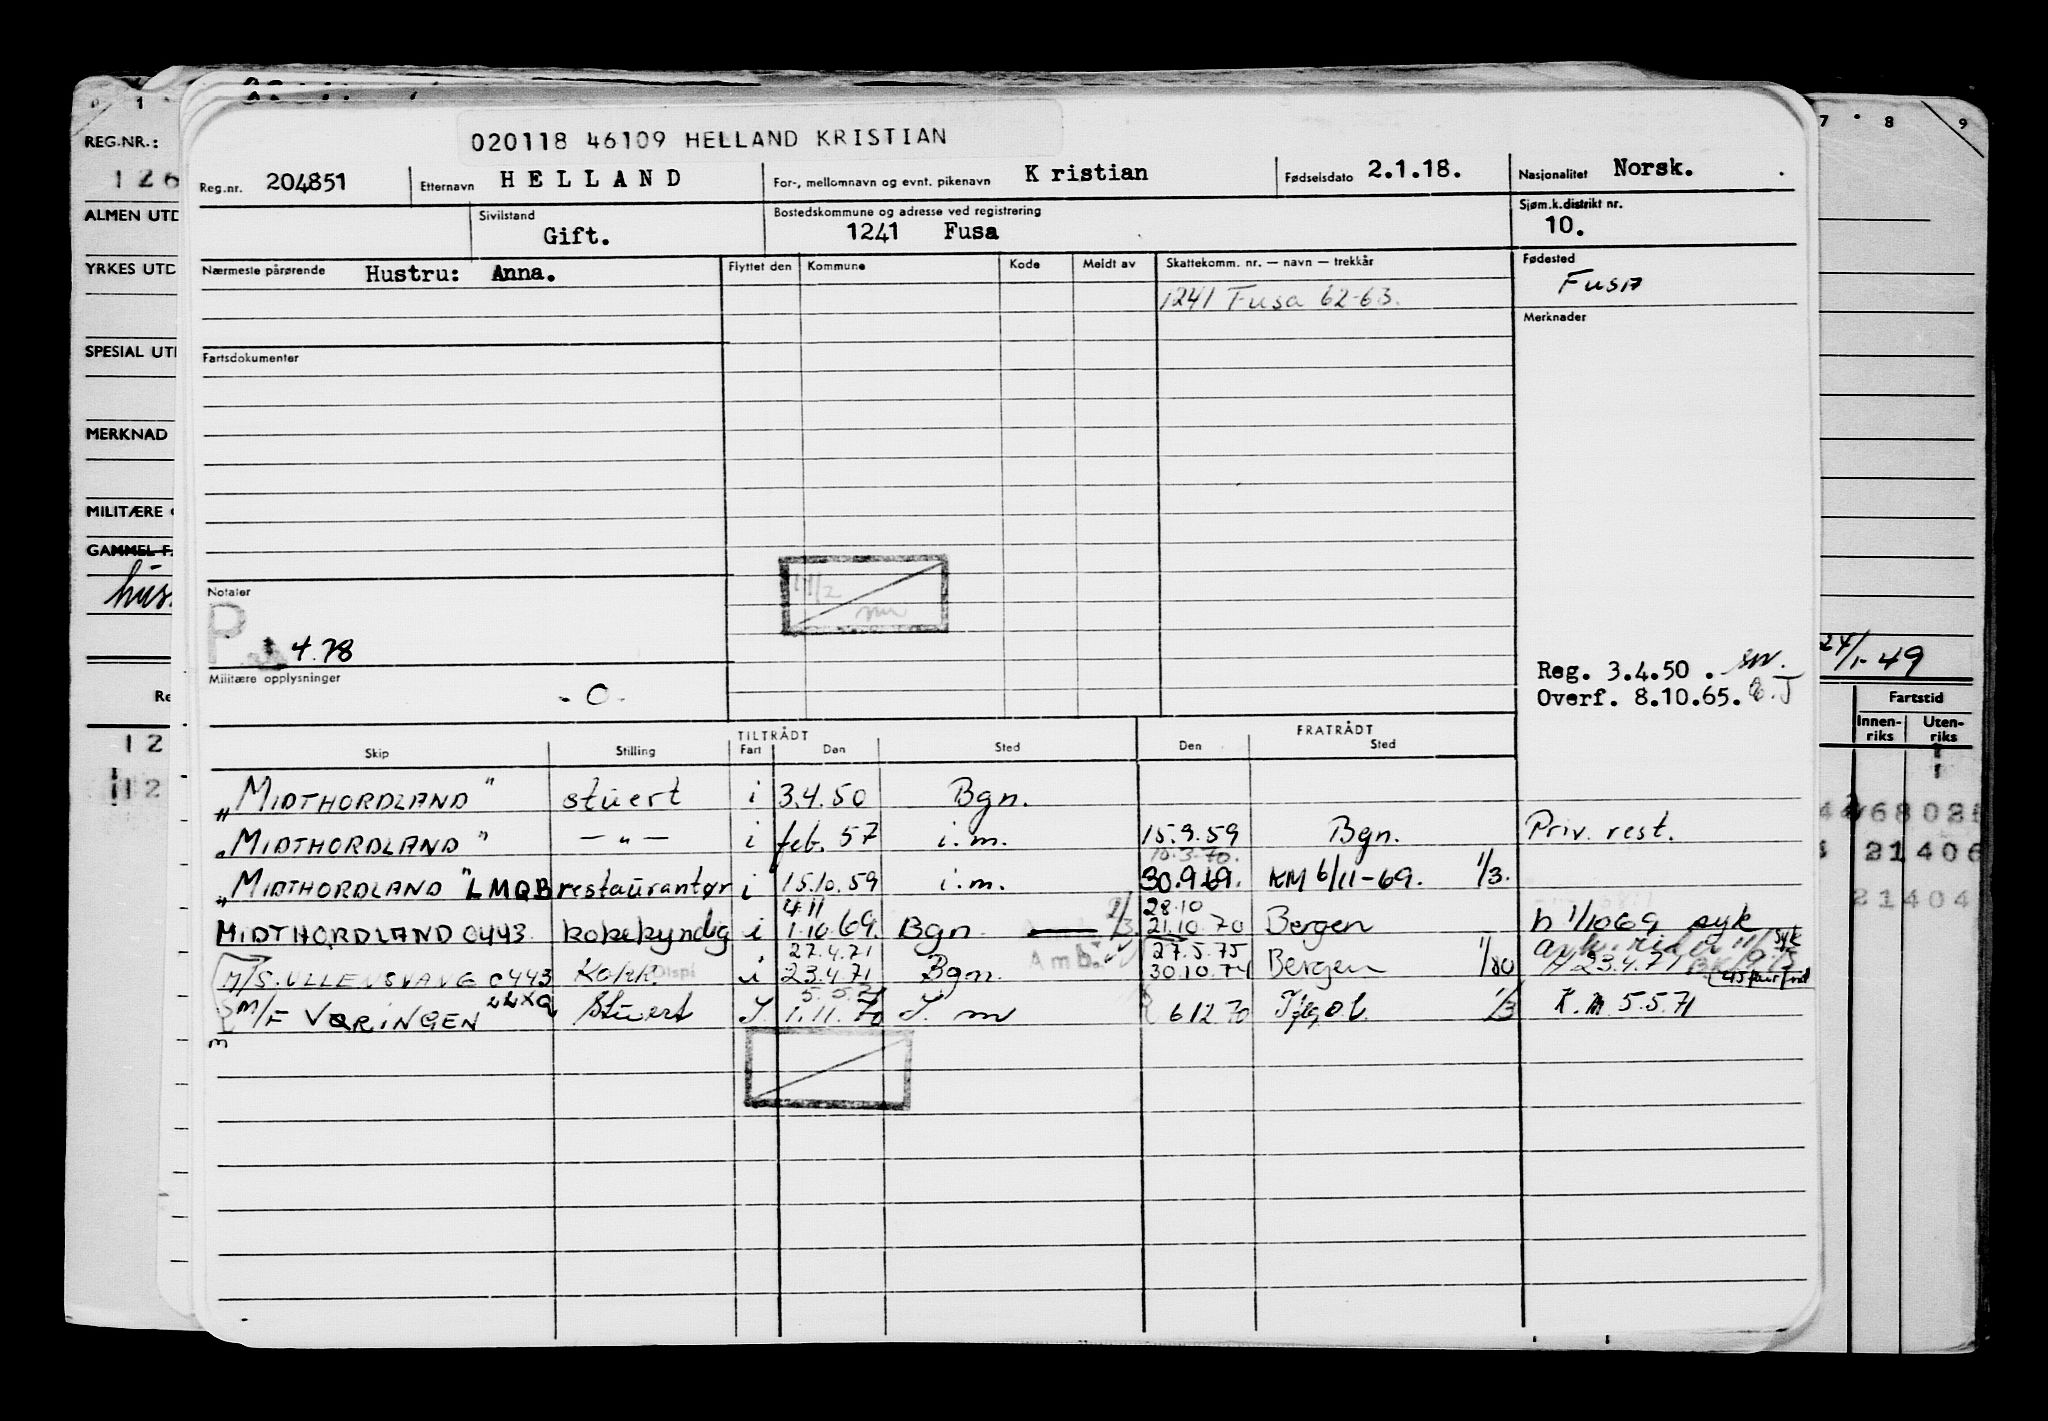 020118 46109 HELLAND KRISTIAN
Reg.nr. 204851 Etternavn HELLAND For-, mellomnavn og evnt. pikenavn Kristian Fødselsdato 2.1.18. Nasjonalitet Norsk.
Sivilstand Gift. Bostedskommune og adresse ved registrering 1241 Fusa Sjøm.k.distrikt nr. 10.
Nærmeste pårørende Hustru: Anna. Flyttet den Kommune Kode Meldt av Skattekomm. nr. — navn — trekkår Fødested Fusa
1241 Fusa 62-63.
Merknader
Fartsdokumenter
Notater
P
4.78
Militære opplysninger - 0 -
Reg. 3.4.50.
Overf. 8.10.65.
TILTRÅDT FRATRÅDT
Skip Stilling Fart Den Sted Den Sted
"MIDTHORDLAND" stuert i 3.4.50 Bgn.
"MIDTHORDLAND" — " — i feb. 57 i.m. 15.9.59 Bgn. Priv. rest.
10.3.70.
"MIDTHORDLAND" LMQB restaurantør i 15.10.59 i.m. 30.9.69. KM 6/11-69. 1/3.
4.11 28.10
MIDTHORDLAND 0443 kokekyndig i 1.10.69. Bgn. 2/3 21.10.70 Bergen h 1/1069 syk
27.4.71 27.5.75
M/S. ULLENSVANG 0443 KOKK i 23.4.71 Bgn. Amb. 30.10.74 Bergen 1/80 23.4.71
5.5.71
M/F VØRINGEN Stuert I 1.11.70 I. m 6 12 70 1/3 K.M 5.5.71
REG.NR.:
126
ALMEN UTD
YRKES UTD
SPESIAL UTD
MERKNAD
MILITÆRE
GAMMEL
hus
12
112
7 8 9
24/1-49
Fartstid
Innen-riks Uten-riks
21406
21404